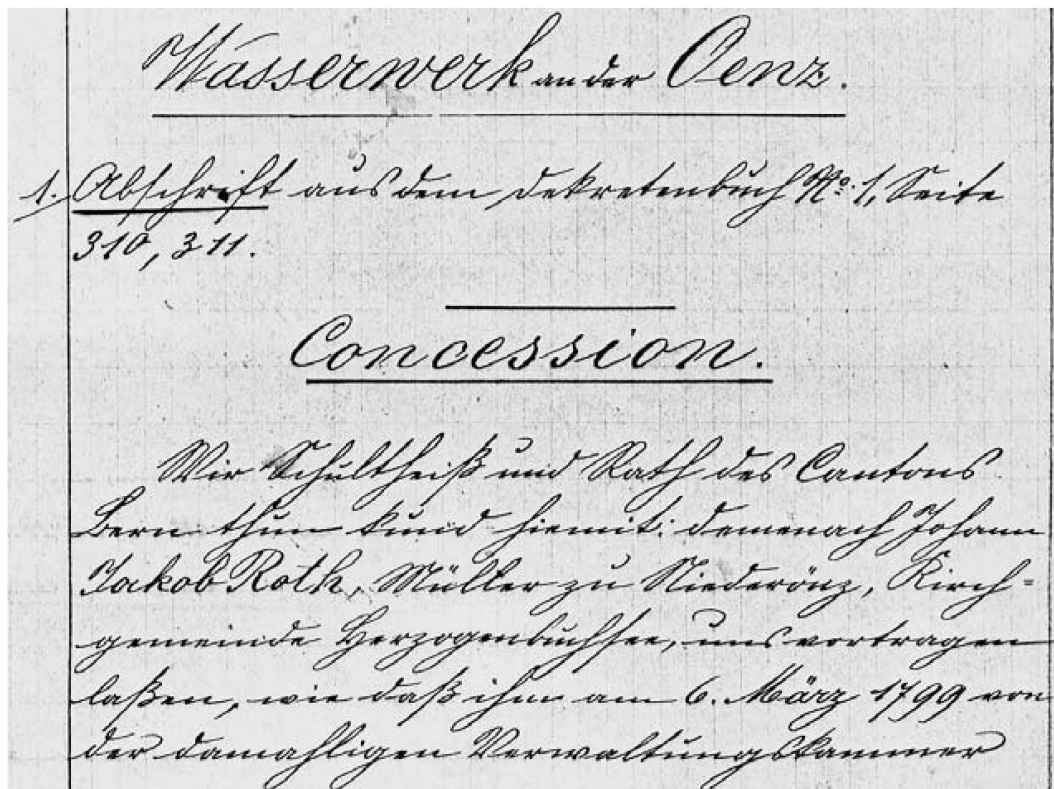 Wasserwerk an der Oenz.
1. Abschrift aus dem Dekretenbuch No. 1, Seite
310, 311.
Concession.
Wir Schultheiß und Rath des Cantons
Bern thun kund hiemit: demenach Johann
Jakob Roth, Müller zu Niederönz, Kirch=
gemeinde Herzogenbuchsee, uns vortragen
laßen, wie daß ihm am 6. März 1799 von
der damahligen Verwaltungskammer